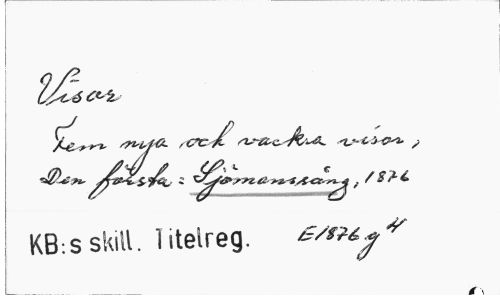 Visor
Fem nya och vackra visor,
Den första: Sjömanssång, 1876
KB:s skill. Titelreg. E1876 g 4